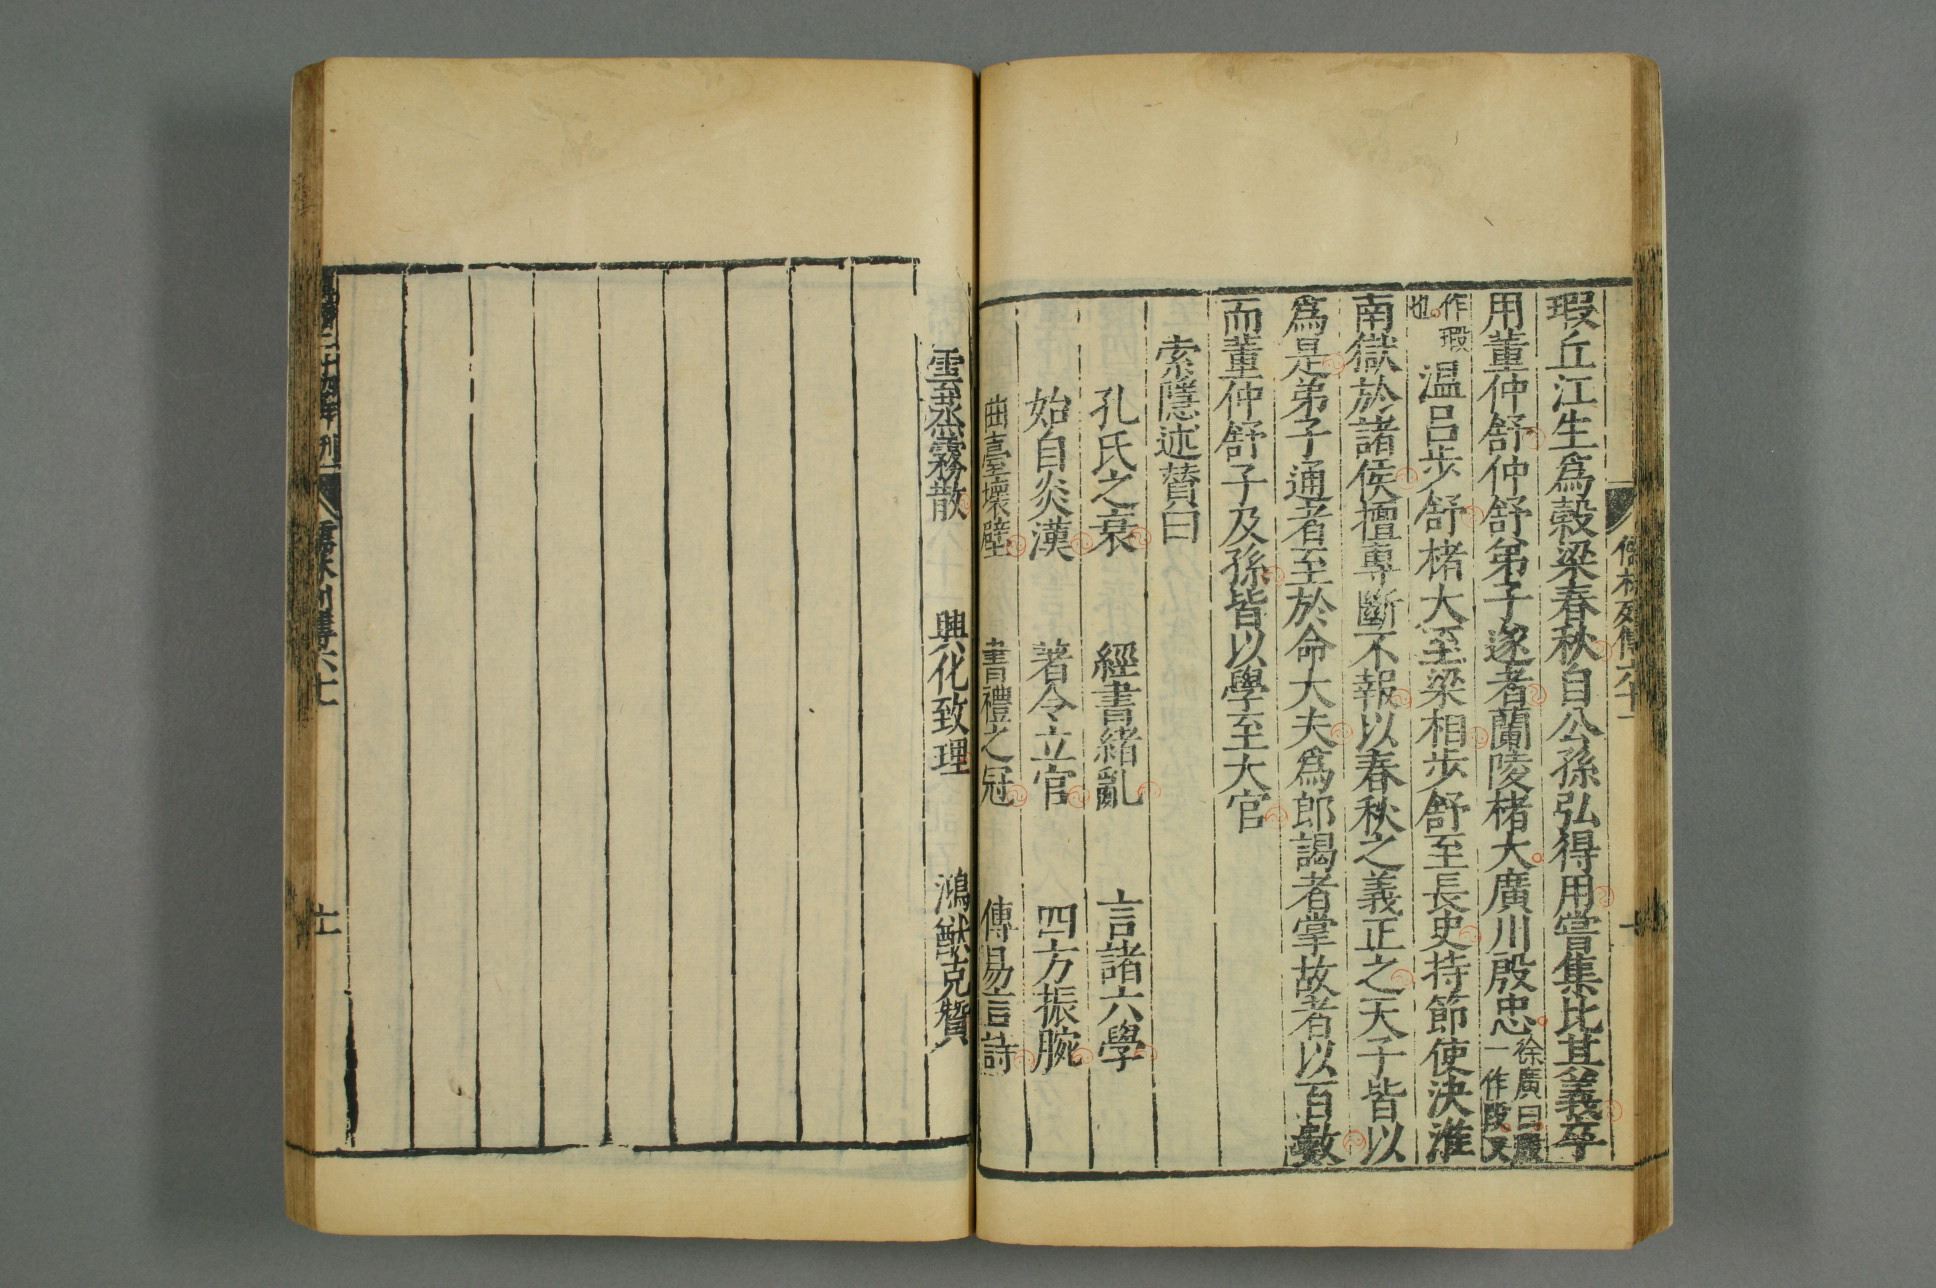 瑕丘江生為穀梁春秋自公孫弘得用嘗集比其義卒
用董仲舒仲舒弟子遂者蘭陵楮大廣川殷忠徐廣曰殷一作段又
作瑕也温吕步舒楮大至梁相步舒至長史持節使決淮
南獄於諸侯擅專斷不報以春秋之義正之天子皆以
為是弟子通者至於命大夫為郎謁者掌故者以百數
而董仲舒子及孫皆以學至大官
索隱述贊曰
孔氏之衰 經書緒亂 言諸六學
始自炎漢 著令立官 四方振腕
曲臺壞壁 書禮之冠 傳易言詩
雲蒸霧散 興化致理 鴻猷克贊
儒林列傳六十一
儒林列傳六十一